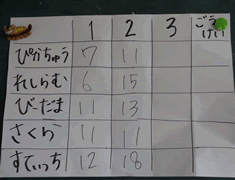 1 2 3 ごうけい
ぴかちゅう 7 11
れしらむ 6 15
びーだま 11 13
さくら 11 11
すてぃっち 12 18